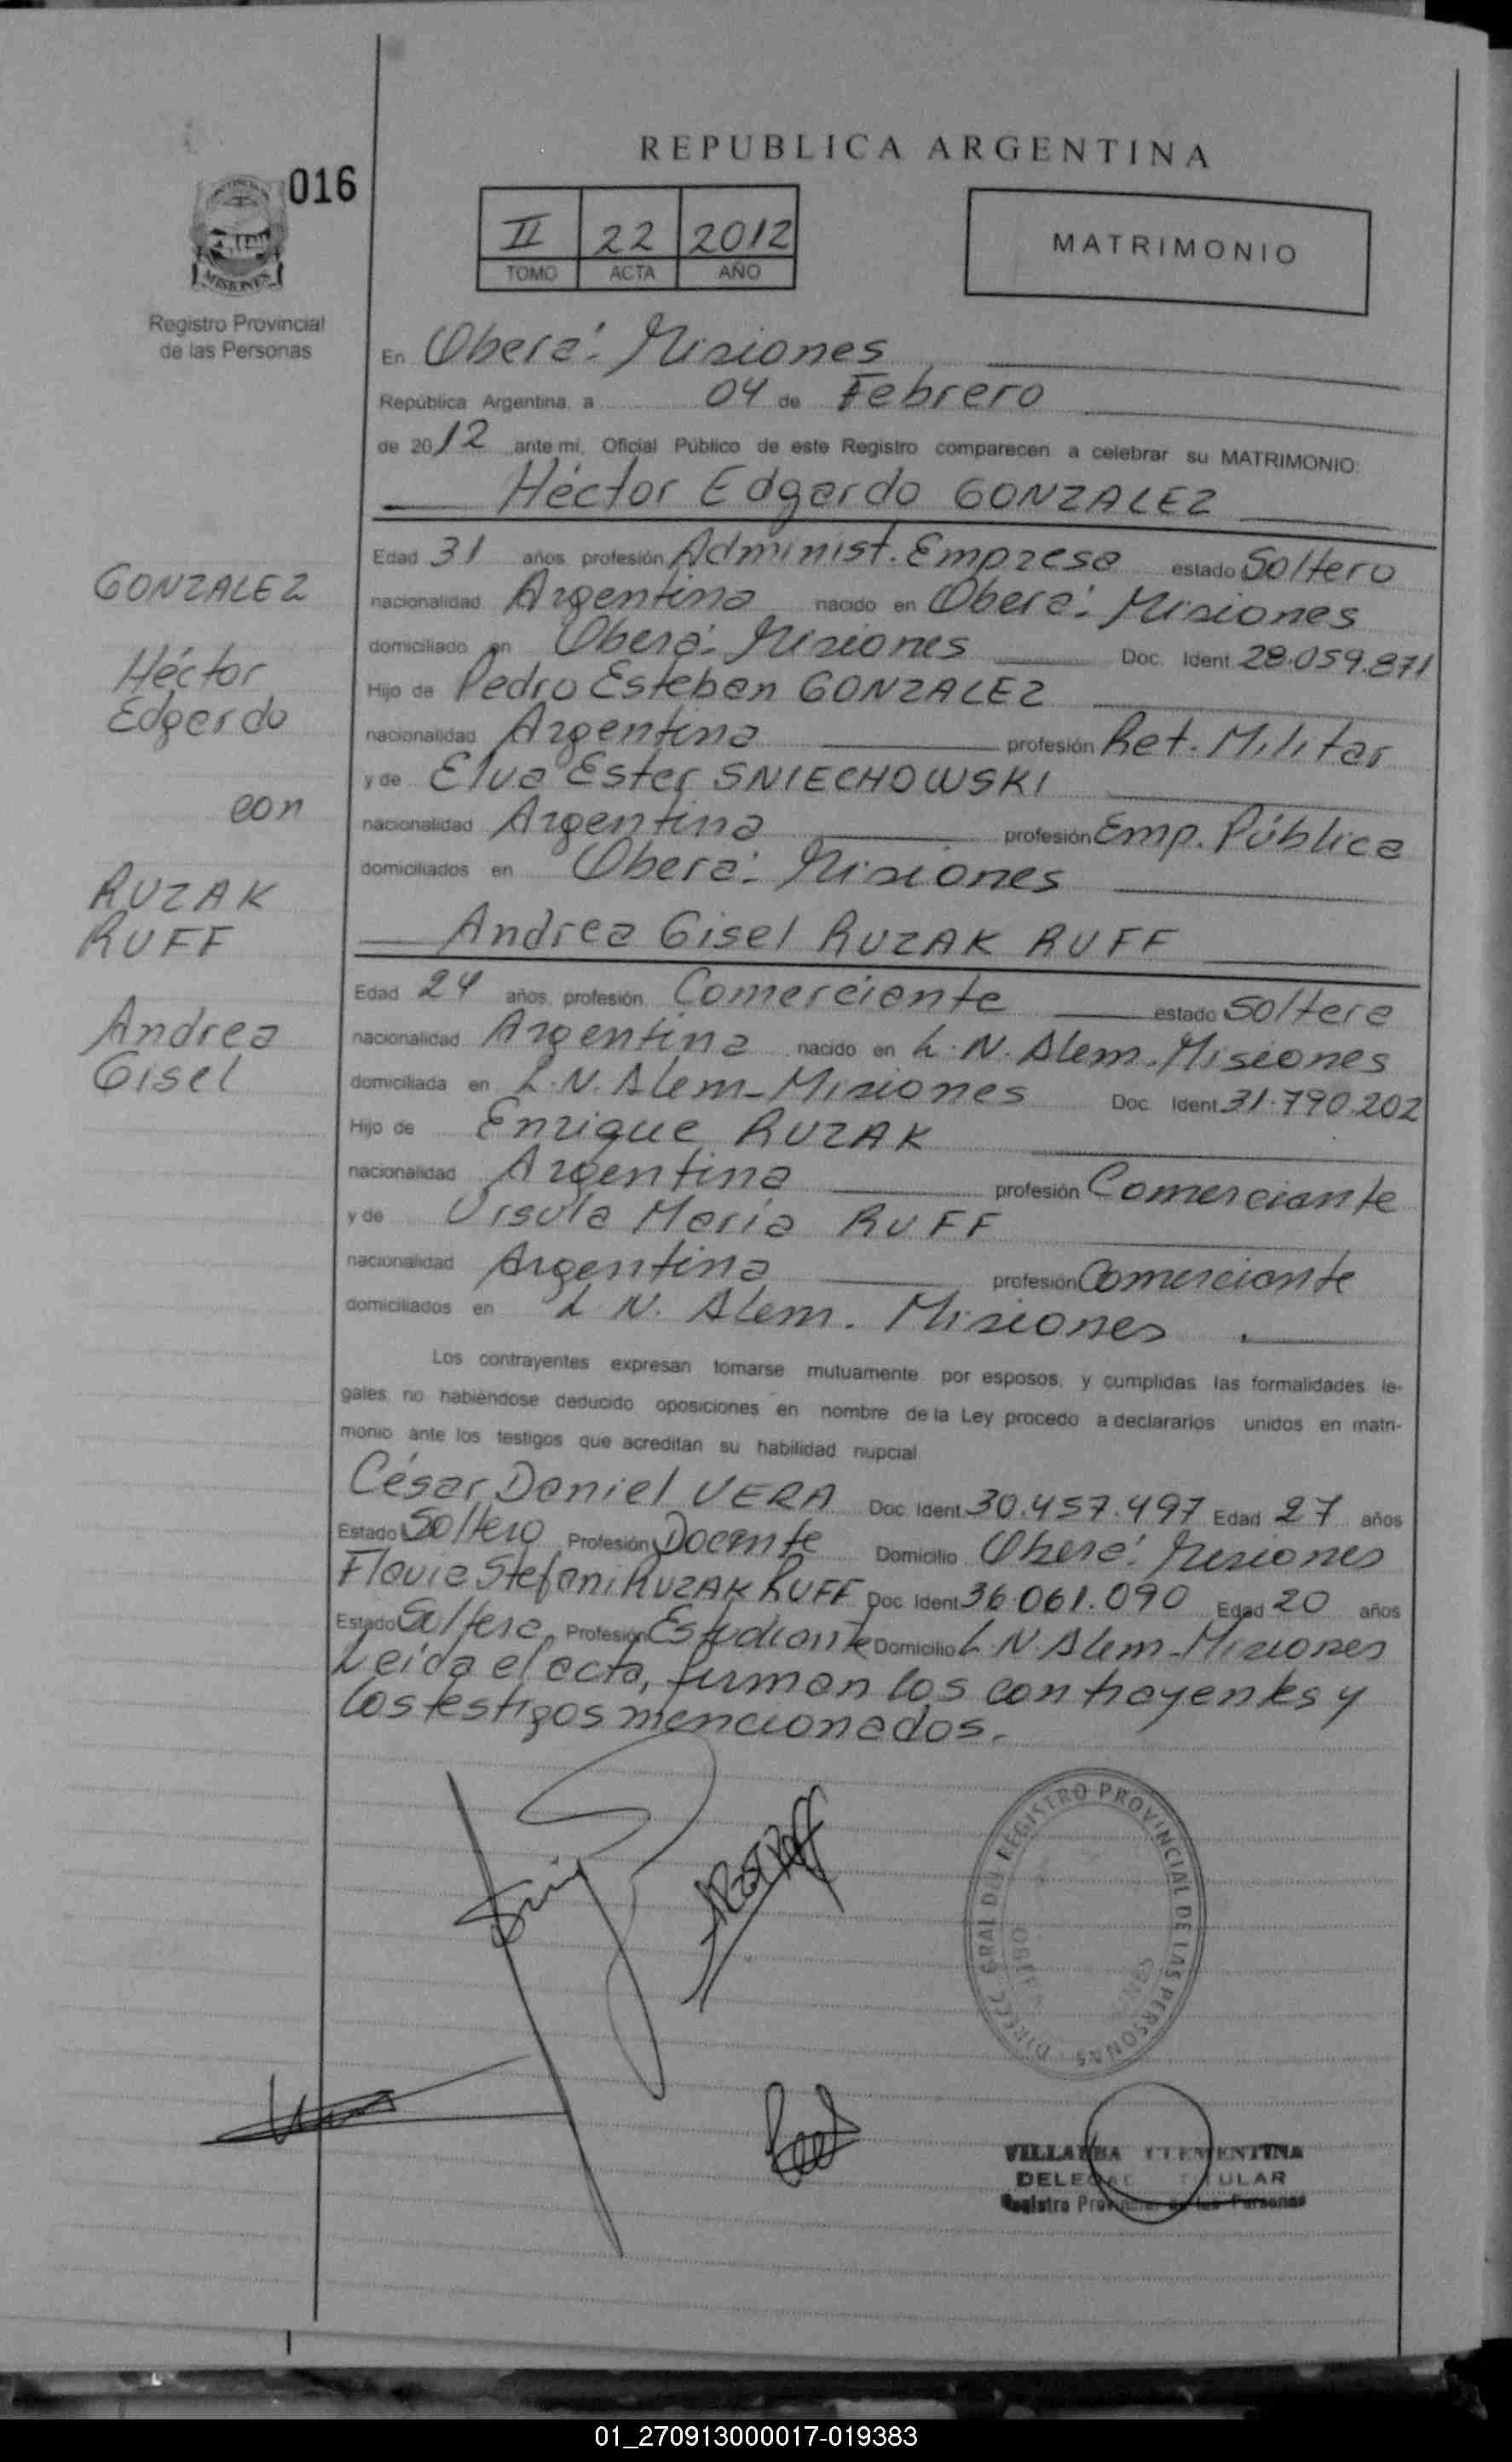 REPUBLICA ARGENTINA
016
II 22 2012
TOMO ACTA AÑO
MATRIMONIO
MISIONES
Registro Provincial
de las Personas
En Oberá - Misiones
República Argentina, a 04 de Febrero
de 2012 ante mi, Oficial Público de este Registro comparecen a celebrar su MATRIMONIO:
Héctor Edgardo GONZALEZ
Edad 31 años profesión Administ. Empresa estado Soltero
nacionalidad Argentina nacido en Oberá - Misiones
domiciliado en Oberá - Misiones Doc. Ident. 28.059.871
Hijo de Pedro Esteban GONZALEZ
nacionalidad Argentina profesión Ret. Militar
y de Elva Ester SNIECHOWSKI
nacionalidad Argentina profesión Emp. Pública
domiciliados en Oberá - Misiones
Andrea Gisel RUZAK RUFF
Edad 24 años profesión Comerciante estado Soltera
nacionalidad Argentina nacido en L. N. Alem - Misiones
domiciliada en L. N. Alem - Misiones Doc. Ident. 31.790.202
Hijo de Enrique RUZAK
nacionalidad Argentina profesión Comerciante
y de Ursula María RUFF
nacionalidad Argentina profesión Comerciante
domiciliados en L N. Alem. Misiones
GONZALEZ
Héctor
Edgardo
con
RUZAK
RUFF
Andrea
Gisel
Los contrayentes expresan tomarse mutuamente por esposos, y cumplidas las formalidades le-
gales, no habiéndose deducido oposiciones en nombre de la Ley procedo a declararlos unidos en matri-
monio ante los testigos que acreditan su habilidad nupcial
César Daniel VERA Doc. Ident. 30.457.497 Edad 27 años
Estado Soltero Profesión Docente Domicilio Oberá - Misiones
Flavia Stefani RUZAK RUFF Doc. Ident. 36.061.090 Edad 20 años
Estado Soltera Profesión Estudiante Domicilio L. N. Alem - Misiones
Leída el acta, firman los contrayentes y
los testigos mencionados.-
DIRECC. GRAL DEL REGISTRO PROVINCIAL DE LAS PERSONAS
OBERA
VILLALBA CLEMENTINA
TITULAR
Registro Provincial de las Personas
01_270913000017-019383